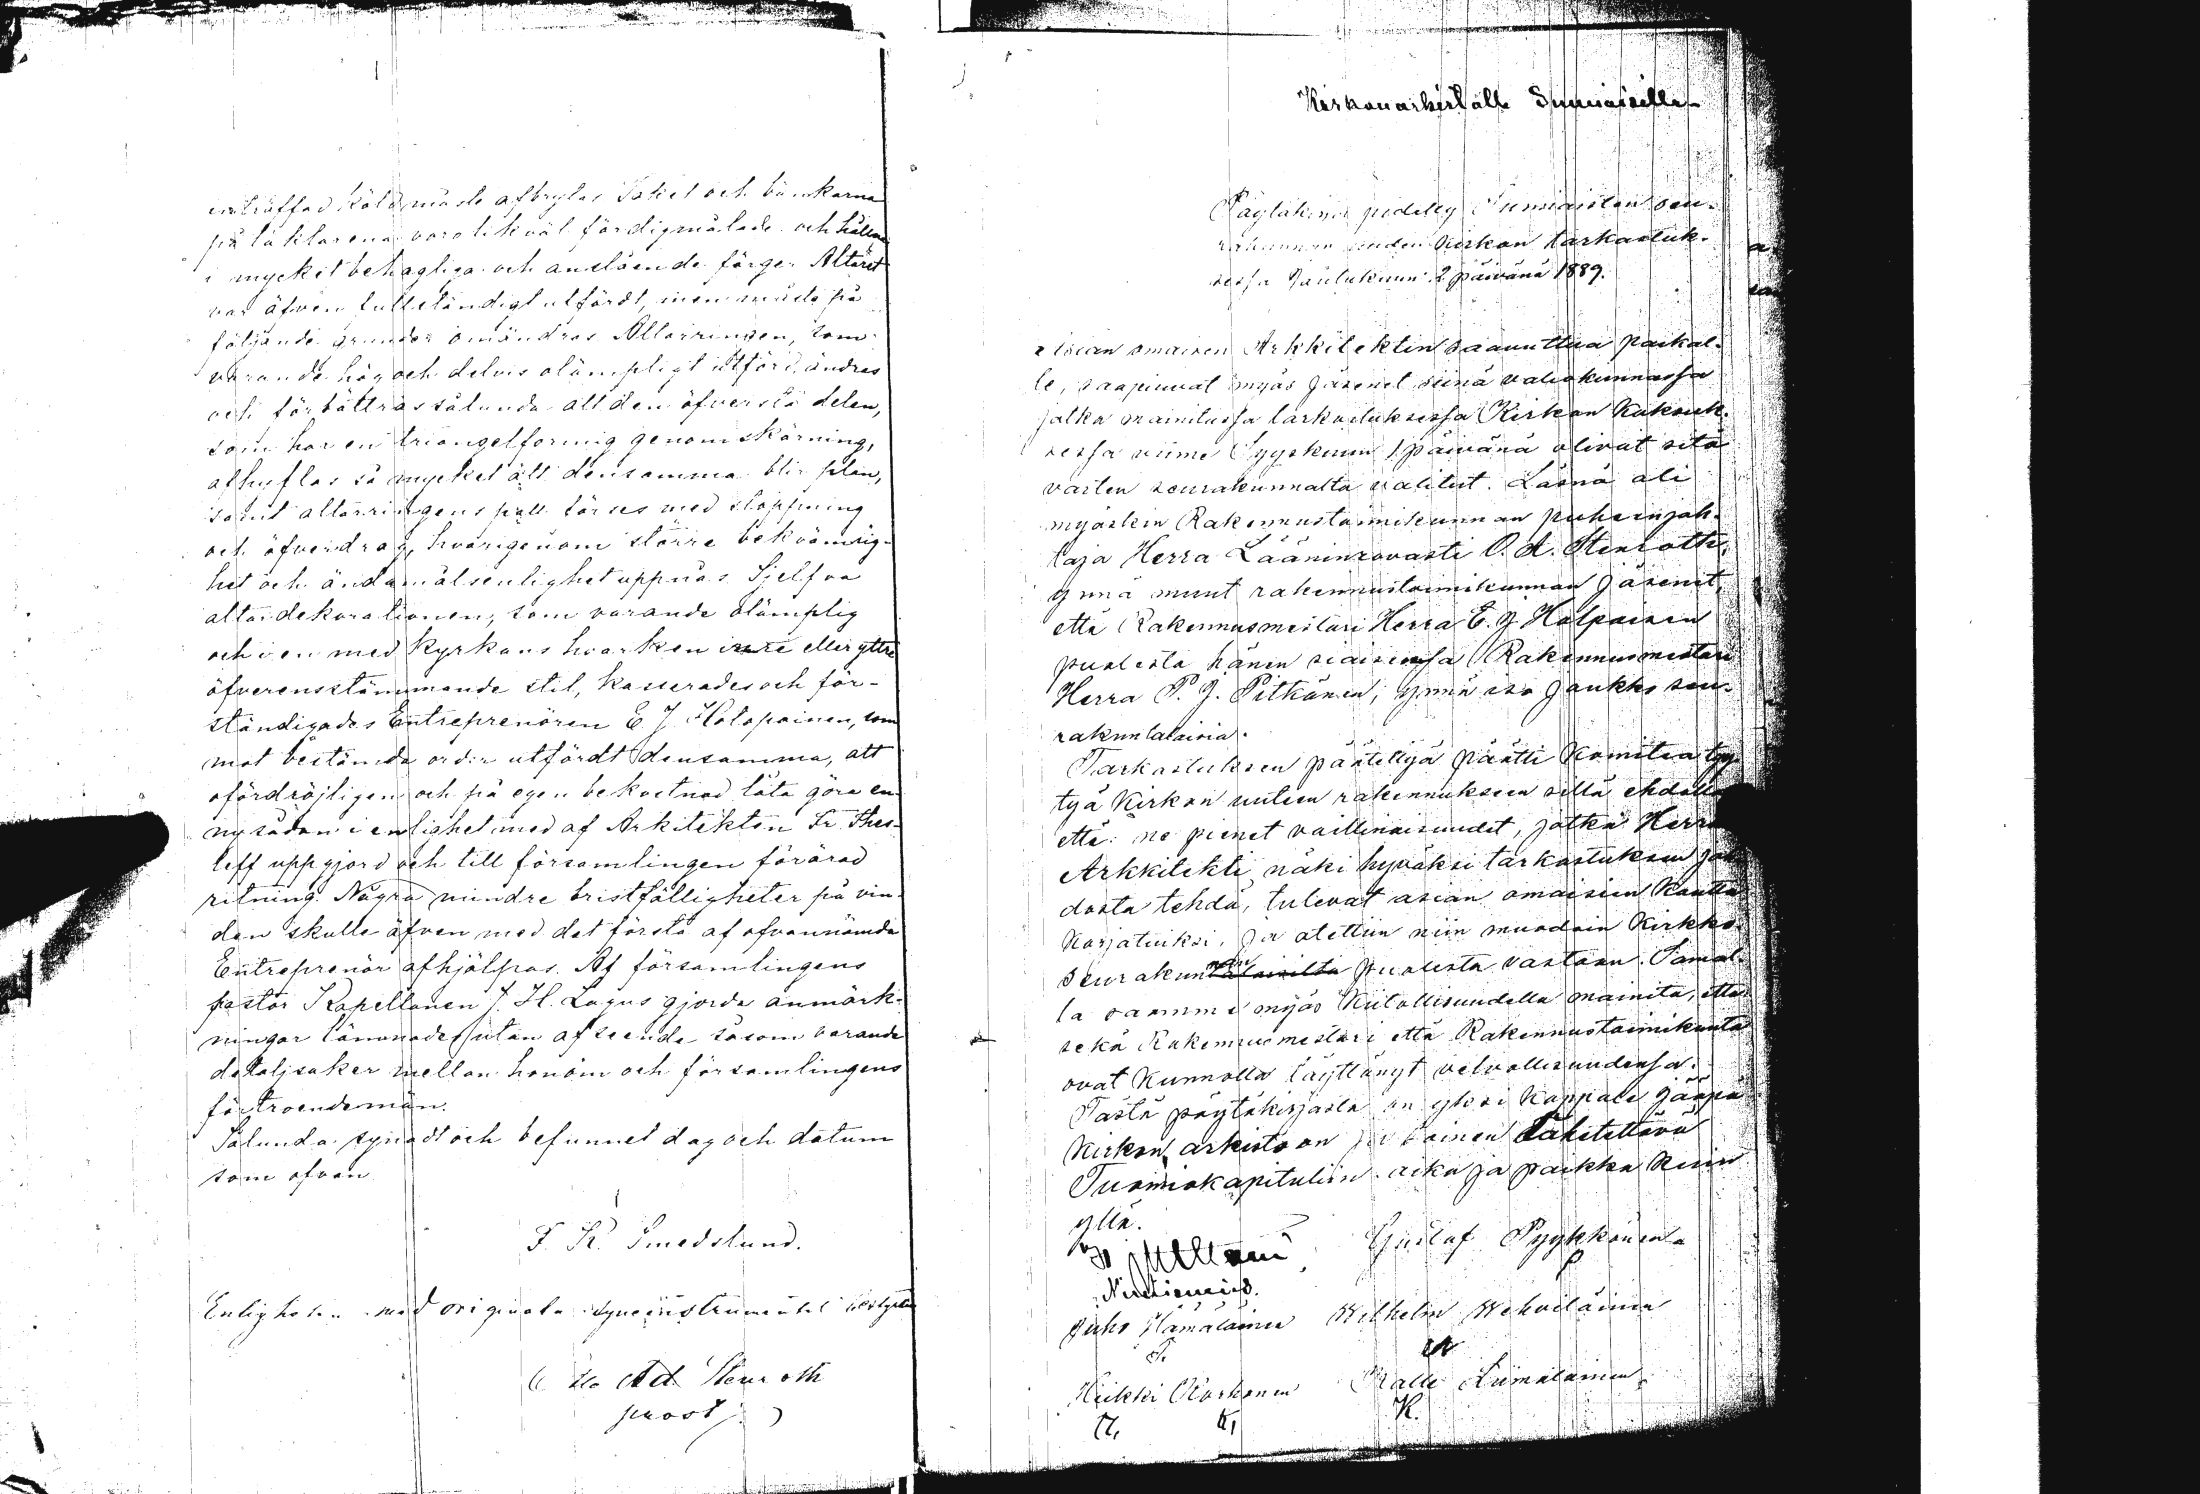 inträffad köld måste afbrytas Taket och bänkarna
på läktarena voro likväl färdigmålade och hållna
i mycket behagliga och anslående färger Altaret
var äfven fullständigt utfördt, men måste på
följande grunder omändras Altarringen, som
varande hög och delvis olämpligt utförd, ändras
och förbättras sålunda att den öfversta delen,
som har en triangelformig genomskärning,
afhyflas så mycket att densamma blir plan,
samt altarringens pall förses med stoppning
och öfverdrag, hvarigenom större beqvämlig-
het och ändamålsenlighet uppnås Sjelfva
altardekorationen, som varande olämplig
och i en med Kyrkans hvarken inre eller yttre
öfverensstämmande stil, kasserades och för-
ständigades Entreprenören E J Holopainen, som
mot bestämda order utfördt densamma, att
ofördröjligen och på egen bekostnad låta göra en
ny sådan i enlighet med af Arkitekten Fr. Thes-
leff uppgjord och till församlingen förärad
ritning. Några mindre bristfälligheter på vin-
den skulle äfven med det första af ofvannämda
Entreprenör afhjälpas. Af församlingens
pastor Kapellanen J. H. Lagus gjorda anmärk-
ningar lämnades utan afseende såsom varande
detaljsaker mellan honom och församlingens
förtroendemän.
Sålunda synadt och befunnet dag och datum
som ofvan
F. Kr. Smedslund.
Enligheten med originala syneinstrumentet
Ad. Stenroth
prost
Kirkonarkistolle Sumiaisille
Pöytäkirja pidetty Sumiaisten seu-
rakunnan uuden Kirkon tarkastuk-
sessa Joulukuun 2 päivänä 1889.
Asian omaisen Arkkitektin saavuttua paikal-
le, saapuivat myös jäsenet siinä valiokunnassa
jotka mainitussa tarkastuksessa Kirkon Kokouk-
sessa viime Syyskuun 1 päivänä olivat sitä
varten seurakunnalta valitut. Läsnä oli
myöskin Rakennustoimikunnan puheenjoh-
taja Herra Lääninrovasti O. A. Stenroth,
ynnä muut rakennustoimikunnan jäsenet,
että Rakennusmestari Herra E. J. Holopainen
puolesta hänen siaisensa Rakennusmestari
Herra P. J. Pitkänen, ynnä iso joukko seu-
rakuntalaisia.
Tarkastuksen päätettyä päätti Komitea tyy-
tyä Kirkon uuteen rakennukseen sillä ehdolla
että: ne pienet vaillinaisuudet, jotka Herra
Arkkitekti näki hyväksi tarkastuksen joh-
dosta tehdä, tulevat asian omaisien kautta
korjatuiksi, ja otettiin niin muodoin Kirkko
seurakunnan puolesta vastaan. Samal-
la saamme myös kiitollisuudella mainita, että
sekä Rakennusmestari että Rakennustoimikunta
ovat kunnolla täyttänyt velvollisuudensa.
Tästä pöytäkirjasta on yksi kappale jääpä
Kirkon arkistoon ja toinen lähetettävä
Tuomiokapituliin. aika ja paikka kuin
yllä.
Gustaf Pyykkönen
P
Juho Hämäläinen Wilhelm Wehviläinen
Heikki Korhonen Kalle Liimatainen
K.